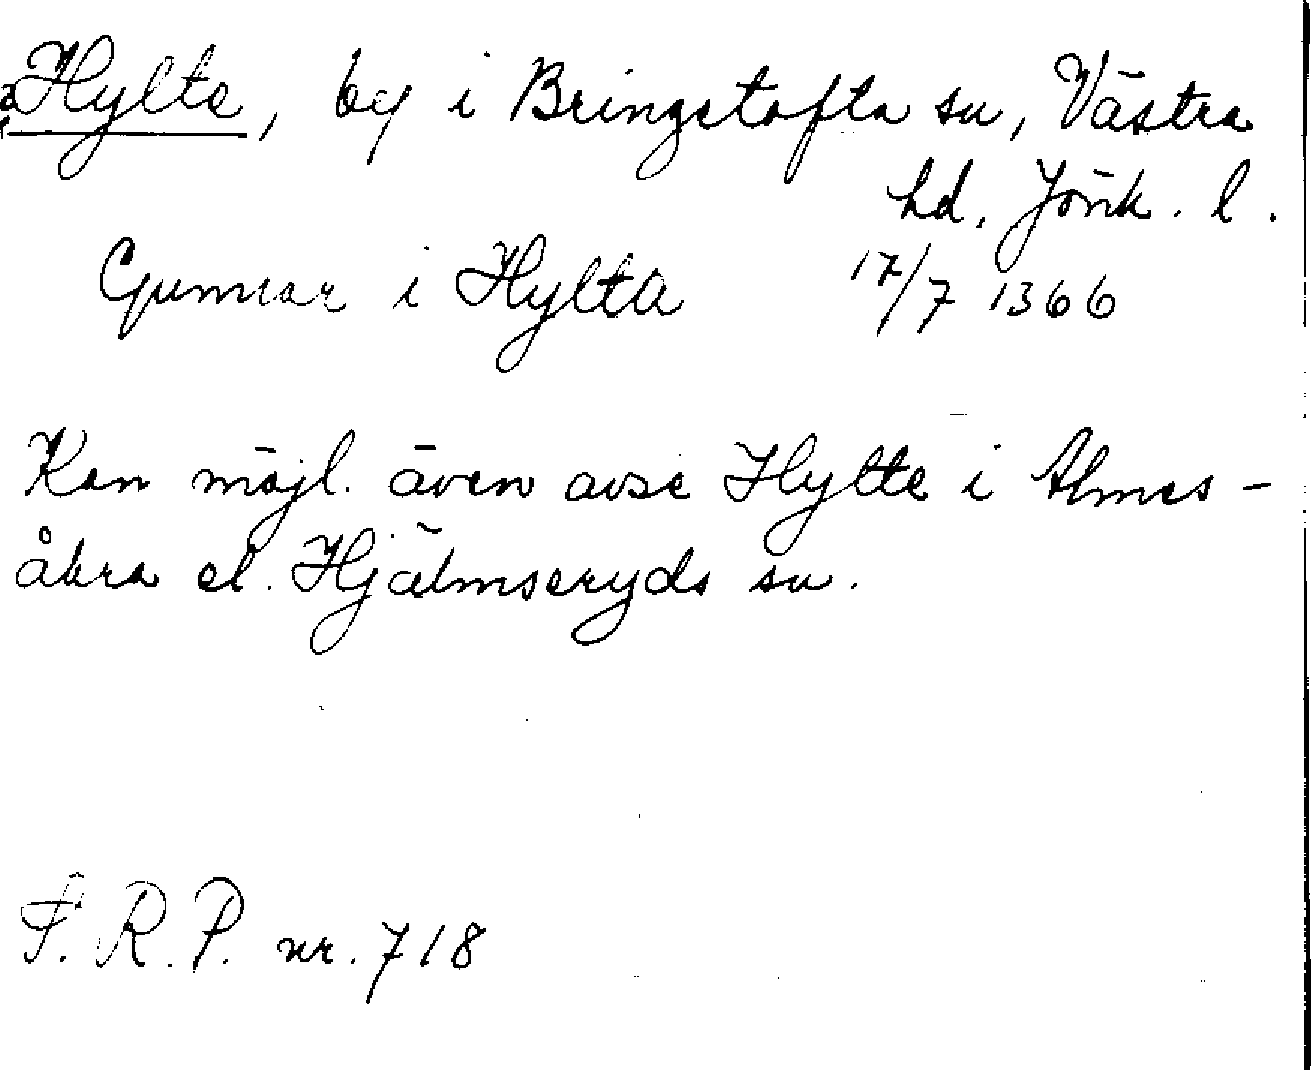 Hylte, by i Bringetofta sn, Västra
hd, Jönk. l.
Gunnar i Hylta 17/7 1366
Kan möjl. även avse Hylte i Almes-
åkra el. Hjälmseryds sn.
S.R.P. nr. 718